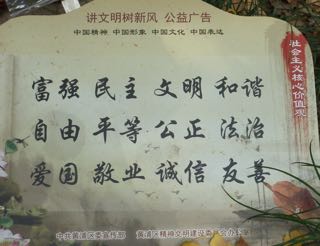 讲文明树新风 公益广告
中国精神 中国形象 中国文化 中国表达
社会主义核心价值观
富强 民主 文明 和谐
自由 平等 公正 法治
爱国 敬业 诚信 友善
中共黄浦区委宣传部 黄浦区精神文明建设委员会办公室